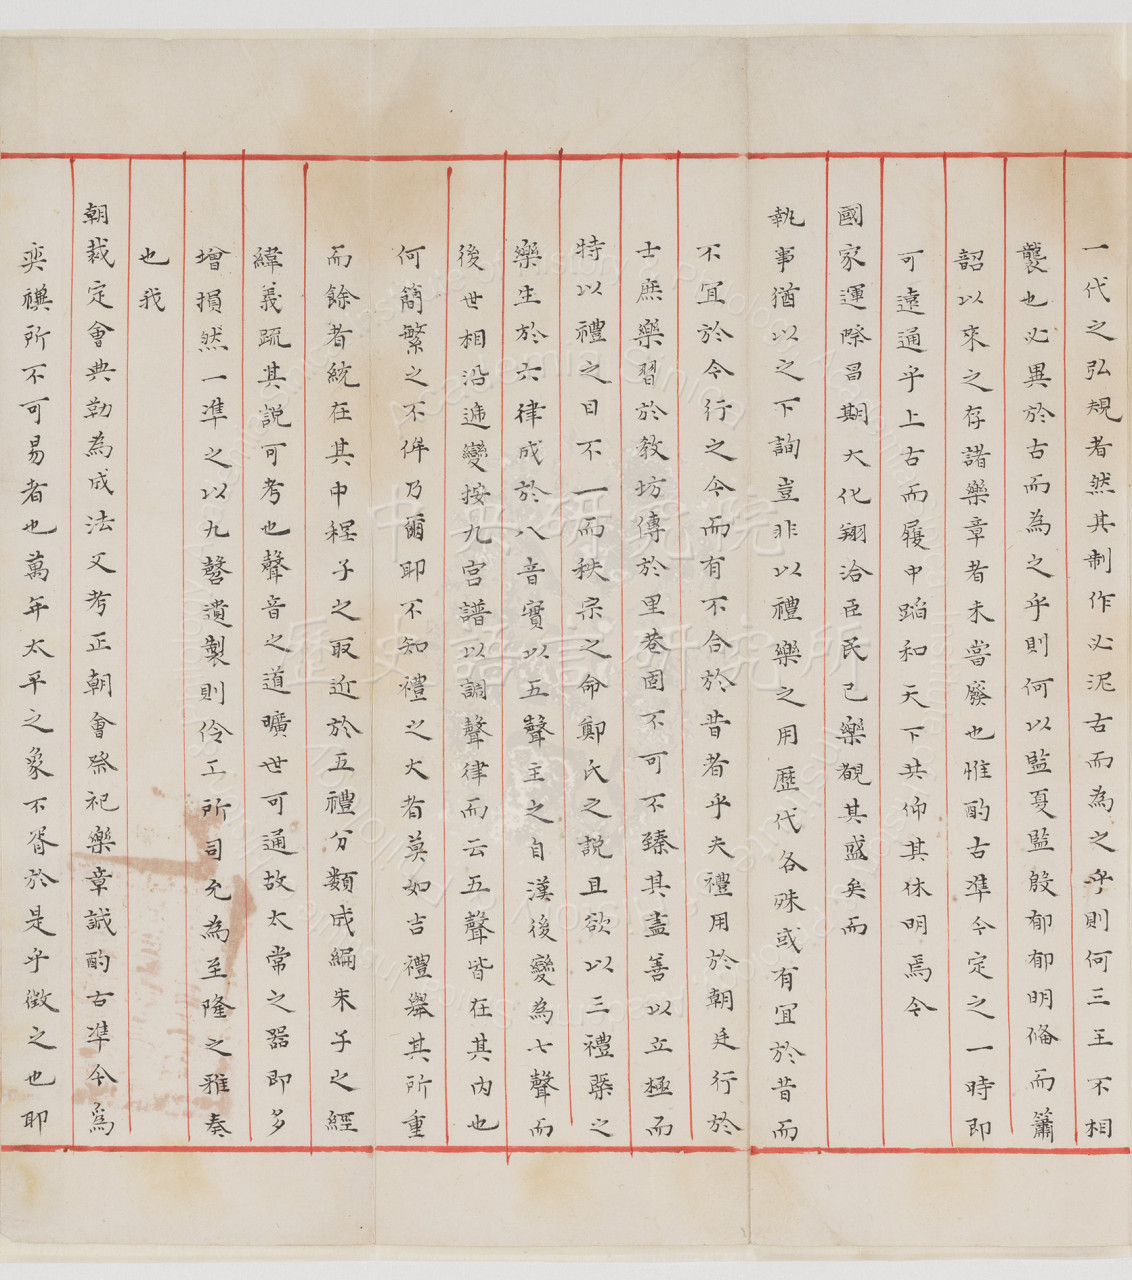 一代之弘規者然其制作必泥古而為之乎則何三王不相
襲也必異於古而為之乎則何以監夏監殷郁郁明俻而簫
韶以來之存諸樂章者未嘗廢也惟酌古凖今定之一時即
可遠通乎上古而履中蹈和天下共仰其休明焉今
國家運際昌期大化翔洽臣民已樂覩其盛矣而
執事猶以之下詢豈非以禮樂之用歷代各殊或有宜於昔而
不宜於今行之今而有不合於昔者乎夫禮用於朝廷行於
士庶樂習於教坊傳於里巷固不可不臻其盡善以立極而
特以禮之目不一而秩宗之命鄭氏之說且欲以三禮槩之
樂生於六律成於八音實以五聲主之自漢後變為七聲而
後世相沿遞變按九宮譜以調聲律而云五聲皆在其內也
何簡繁之不侔乃爾耶不知禮之大者莫如吉禮舉其所重
而餘者統在其中程子之取近於五禮分類成編朱子之經
緯義疏其說可考也聲音之道曠世可通故太常之器即多
增損然一凖之以九磬遺製則伶工所司允為至隆之雅奏
也我
朝裁定會典勒為成法又考正朝會祭祀樂章誠酌古凖今爲
奕禩所不可易者也萬年太平之象不胥於是乎徵之也耶
中央研究院
歷史語言研究所